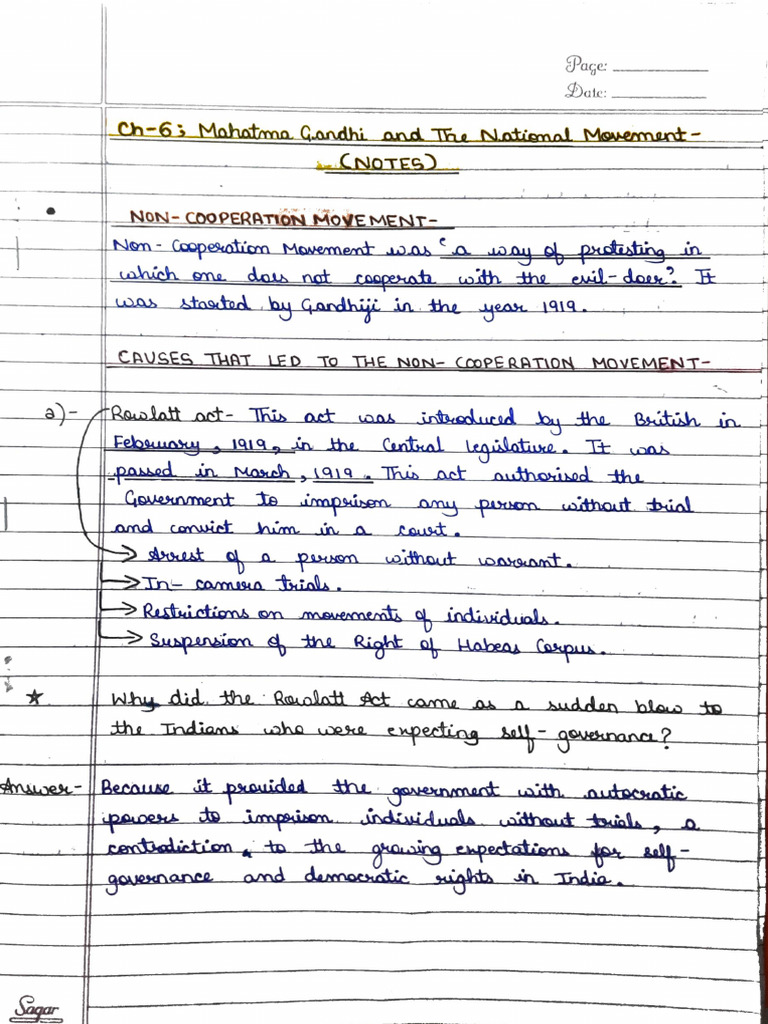 Page:
Date:
Ch-6: Mahatma Gandhi and The National Movement-
(NOTES)
NON-COOPERATION MOVEMENT-
Non-Cooperation Movement was 'a way of protesting in
which one does not cooperate with the evil-doer'. It
was started by Gandhiji in the year 1919.
CAUSES THAT LED TO THE NON-COOPERATION MOVEMENT-
a)- Rowlatt act- This act was introduced by the British in
February, 1919, in the Central legislature. It was
passed in March, 1919. This act authorised the
Government to imprison any person without trial
and convict him in a court.
→ Arrest of a person without warrant.
→ In-camera trials.
→ Restrictions on movements of individuals.
→ Suspension of the Right of Habeas Corpus.
★ Why did the Rowlatt Act came as a sudden blow to
the Indians who were expecting self-governance?
Answer- Because it provided the government with autocratic
powers to imprison individuals without trials, a
contradiction to the growing expectations for self-
governance and democratic rights in India.
Sagar